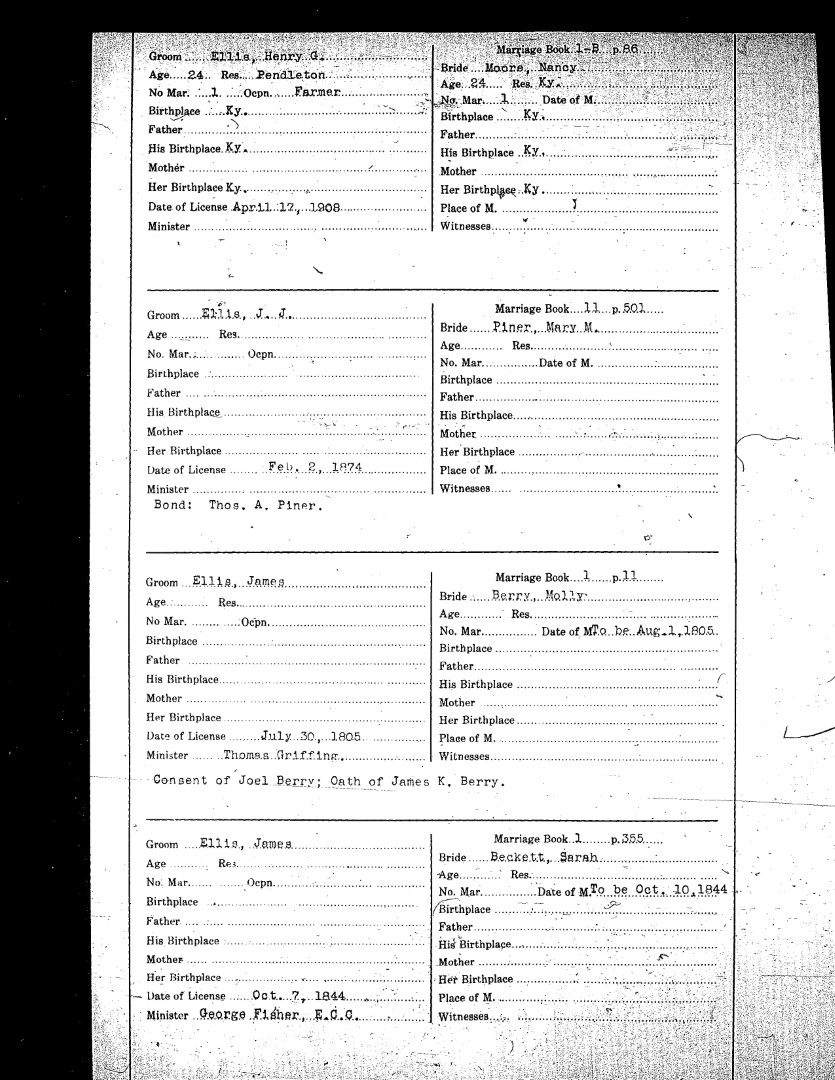 Groom Ellis, Henry G.
Age 24 Res. Pendleton
No Mar. 1 Ocpn. Farmer
Birthplace Ky.
Father
His Birthplace Ky.
Mother
Her Birthplace Ky.
Date of License April 17, 1908
Minister
Marriage Book 1-B p. 86
Bride Moore, Nancy
Age 24 Res. Ky.
No. Mar. 1 Date of M.
Birthplace Ky.
Father
His Birthplace Ky.
Mother
Her Birthplace Ky.
Place of M.
Witnesses
Groom Ellis, J. J.
Age Res.
No. Mar. Ocpn.
Birthplace
Father
His Birthplace
Mother
Her Birthplace
Date of License Feb. 2, 1874
Minister
Bond: Thos. A. Piner.
Marriage Book 11 p. 501
Bride Piner, Mary M.
Age Res.
No. Mar. Date of M.
Birthplace
Father
His Birthplace
Mother
Her Birthplace
Place of M.
Witnesses
Groom Ellis, James
Age Res.
No Mar. Ocpn.
Birthplace
Father
His Birthplace
Mother
Her Birthplace
Date of License July 30, 1805
Minister Thomas Griffing.
Consent of Joel Berry; Oath of James K. Berry.
Marriage Book 1 p. 11
Bride Berry, Molly
Age Res.
No. Mar. Date of M. To be Aug.1,1805.
Birthplace
Father
His Birthplace
Mother
Her Birthplace
Place of M.
Witnesses
Groom Ellis, James
Age Res.
No. Mar. Ocpn.
Birthplace
Father
His Birthplace
Mother
Her Birthplace
Date of License Oct. 7, 1844
Minister George Fisher, E.C.C.
Marriage Book 1 p. 355
Bride Beckett, Sarah
Age Res.
No. Mar. Date of M. To be Oct. 10,1844
Birthplace
Father
His Birthplace
Mother
Her Birthplace
Place of M.
Witnesses